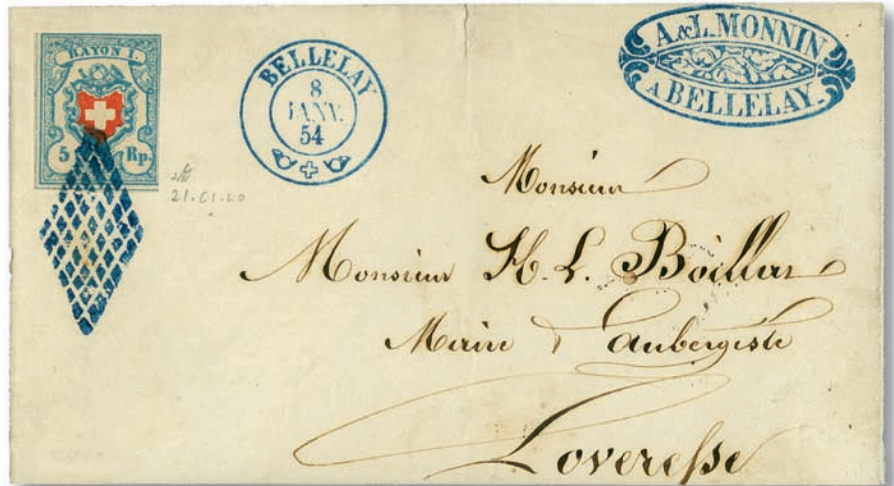 RAYON I.
5 Rp.
BELLELAY
8
JANV.
54
A. & L. MONNIN
A BELLELAY.
21.01.20
Monsieur
Monsieur H. L. Boillat
Maire & Aubergiste
Loveresse